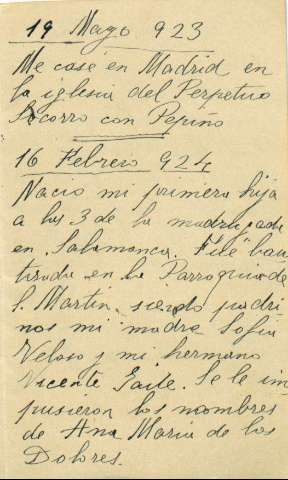 19 Mayo 923
Me casé en Madrid en
la iglesia del Perpetuo
Socorro con Pepiño
16 Febrero 924
Nacio mi primera hija
a las 3 de la madrugada
en Salamanca. Fué bau
tizada en la Parroquia de
S. Martin, siendo padri
nos mi madre Sofia
Veloso y mi hermano
Vicente Gaite. Se le im
pusieron los nombres
de Ana Maria de los
Dolores.